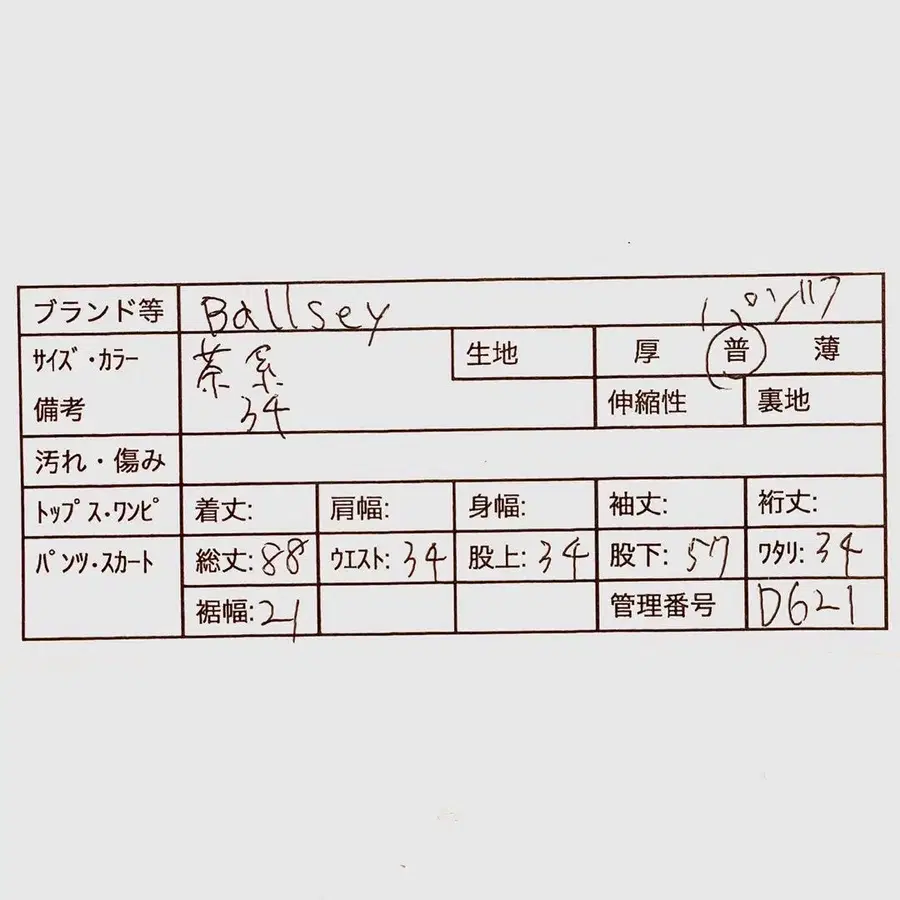 ブランド等 Ballsey パンツ
サイズ・カラー 茶系 生地 厚 普 薄
備考 34 伸縮性 裏地
汚れ・傷み
トップス・ワンピ 着丈: 肩幅: 身幅: 袖丈: 裄丈:
パンツ・スカート 総丈:88 ウエスト:34 股上:34 股下:57 ワタリ:34
裾幅:21 管理番号 D621